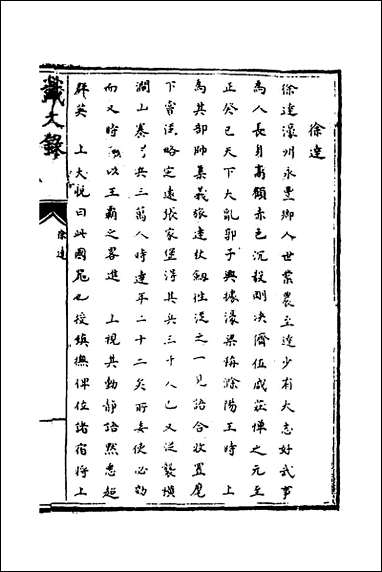 徐達
徐達濠州永豐鄉人世業農至達少有大志好武事
為人長身高顴赤色沉毅剛决儕伍咸莊憚之元至
正癸巳天下大亂郭子興據濠梁稱滁陽王時　上
為其部帥集義旅達杖劔往從之一見語合收置麾
下嘗從略定遠張家堡得其兵三千人已又從襲橫
澗山寨得兵三萬人時達年二十二矣所委使必効
而又時時以王霸之畧進　上視其動靜語默悉超
群英　上大悅曰此國冠也授鎮撫俾位諸宿將上
藏文錄
徐達